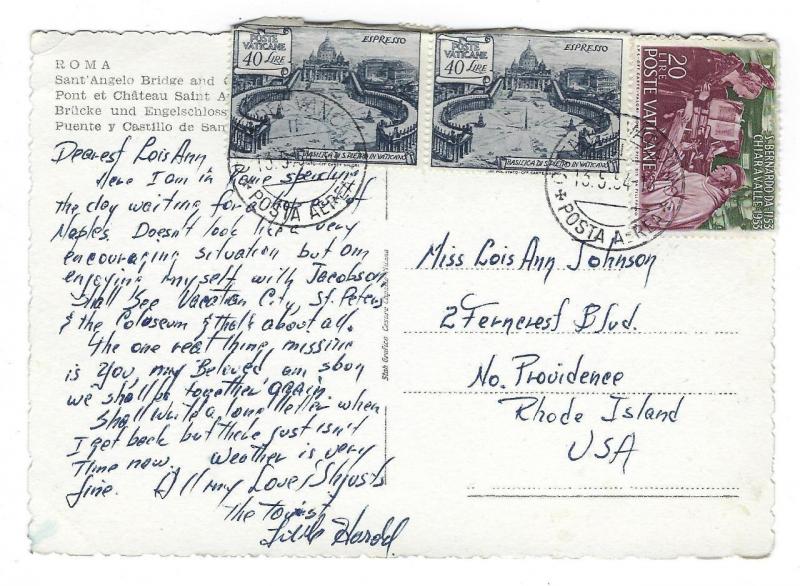 ROMA
Sant'Angelo Bridge and
Pont et Château Saint A
Brücke und Engelschloss
Puente y Castillo de San
POSTE VATICANE
40 LIRE
ESPRESSO
BASILICA DI S. PIETRO IN VATICANO
POSTE VATICANE
40 LIRE
ESPRESSO
BASILICA DI S. PIETRO IN VATICANO
20 LIRE
POSTE VATICANE
S. BERNARDO DA CHIARAVALLE 1153 1953
POSTA AEREA
POSTA AEREA
Dearest Lois Ann
Here I am in Rome spending
the day waiting for a
Naples. Doesn't look like very
encouraging situation but am
enjoying myself with Jacobson.
Shall see Vacation City, St. Peters
& the Coloseum & that's about all.
The one real thing missing
is You, my Beloved
we shall be together again.
Shall write a long letter when
I get back but there just isn't
time now. Weather is very
fine. All my Love
The Tourist,
Harold
Miss Lois Ann Johnson
2 Ferncrest Blvd.
No. Providence
Rhode Island
USA